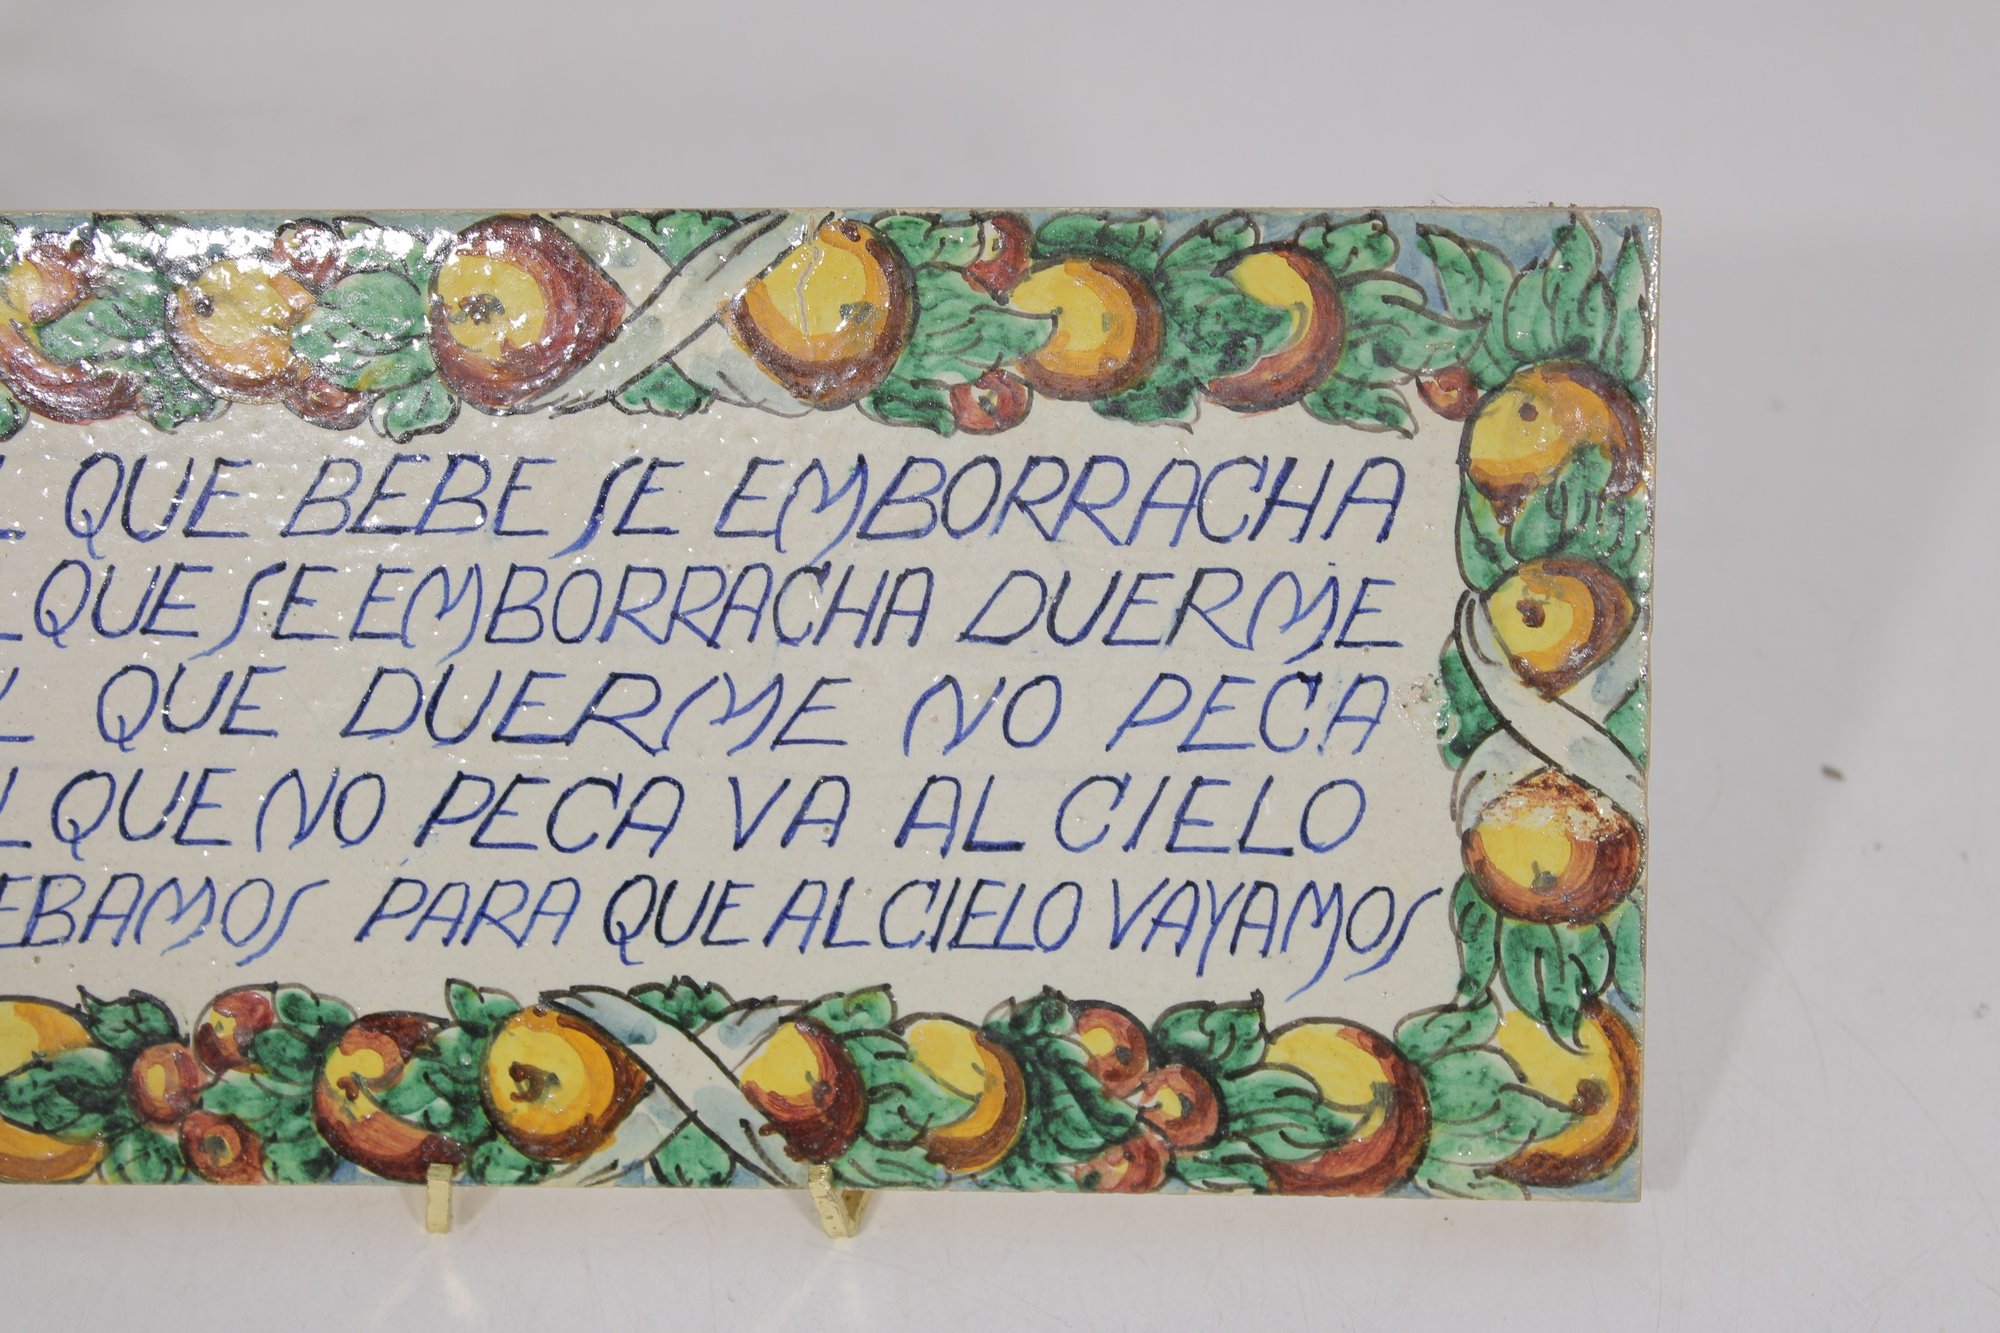 L QUE BEBE SE EMBORRACHA
L QUE SE EMBORRACHA DUERME
L QUE DUERME NO PECA
L QUE NO PECA VA AL CIELO
EBAMOS PARA QUE AL CIELO VAYAMOS